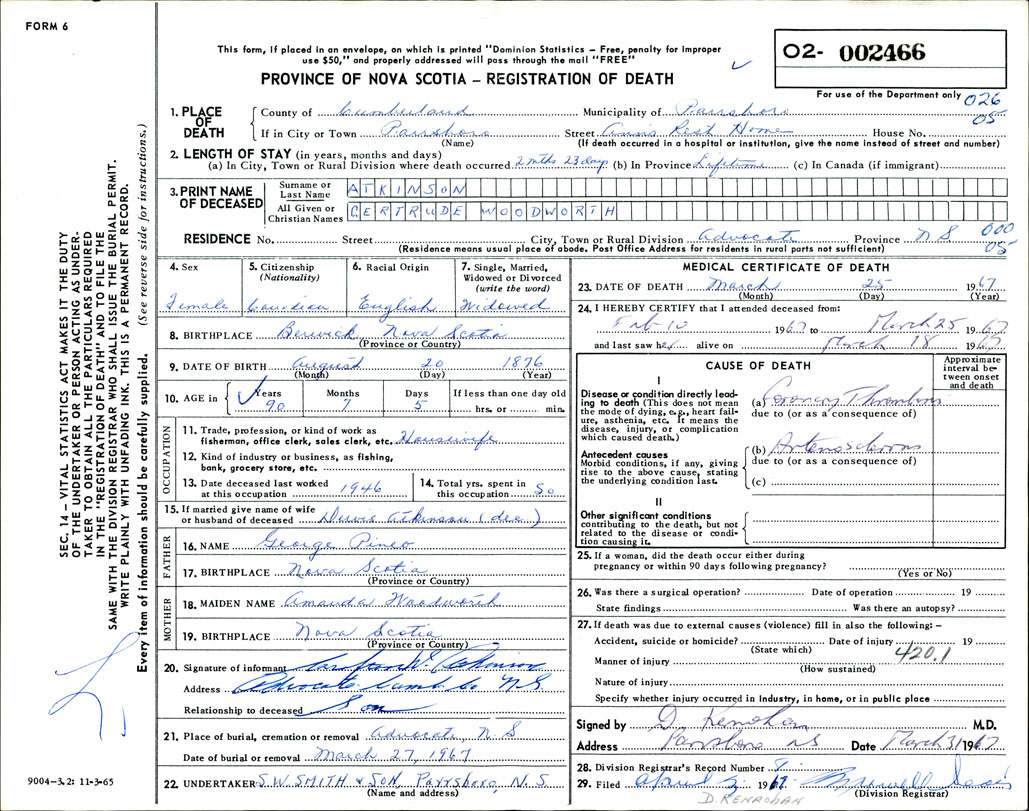 FORM 6
This form, if placed in an envelope, on which is printed "Dominion Statistics – Free, penalty for improper
use $50," and properly addressed will pass through the mail "FREE"
PROVINCE OF NOVA SCOTIA – REGISTRATION OF DEATH
02- 002466
For use of the Department only 026
05
1. PLACE OF DEATH
County of Cumberland Municipality of Parrsboro
If in City or Town Parrsboro Street Ann's Rest Home House No.
(Name) (If death occurred in a hospital or institution, give the name instead of street and number)
2. LENGTH OF STAY (in years, months and days)
(a) In City, Town or Rural Division where death occurred 2 mths 23 days (b) In Province Lifetime (c) In Canada (if immigrant)
3. PRINT NAME OF DECEASED
Surname or Last Name ATKINSON
All Given or Christian Names GERTRUDE WOODWORTH
RESIDENCE No. Street City, Town or Rural Division Advocate Province N S 000
05
(Residence means usual place of abode. Post Office Address for residents in rural parts not sufficient)
4. Sex 5. Citizenship 6. Racial Origin 7. Single, Married,
(Nationality) Widowed or Divorced
(write the word)
Female Canadian English Widowed
8. BIRTHPLACE Berwick Nova Scotia
(Province or Country)
9. DATE OF BIRTH August 20 1876
(Month) (Day) (Year)
10. AGE in Years Months Days If less than one day old
90 7 5 hrs. or min.
OCCUPATION
11. Trade, profession, or kind of work as
fisherman, office clerk, sales clerk, etc. Housewife
12. Kind of industry or business, as fishing,
bank, grocery store, etc.
13. Date deceased last worked
at this occupation 1946
14. Total yrs. spent in
this occupation 50
15. If married give name of wife
or husband of deceased Atkinson (dec)
FATHER
16. NAME George Pineo
17. BIRTHPLACE Nova Scotia
(Province or Country)
MOTHER
18. MAIDEN NAME Amanda Woodworth
19. BIRTHPLACE Nova Scotia
(Province or Country)
20. Signature of informant Atkinson
Address Advocate Cumb Co N.S.
Relationship to deceased Son
21. Place of burial, cremation or removal Advocate, N S
Date of burial or removal March 27, 1967
22. UNDERTAKER S.W. SMITH & SON, Parrsboro, N.S.
(Name and address)
MEDICAL CERTIFICATE OF DEATH
23. DATE OF DEATH March 25 1967
(Month) (Day) (Year)
24. I HEREBY CERTIFY that I attended deceased from:
Feb 10 1967 to March 25 1967
and last saw her alive on March 18 1967
CAUSE OF DEATH
Approximate
interval be-
tween onset
and death
I
Disease or condition directly lead-
ing to death (This does not mean
the mode of dying, e.g., heart fail-
ure, asthenia, etc. It means the
disease, injury, or complication
which caused death.)
(a) Coronary Thrombosis
due to (or as a consequence of)
Antecedent causes
Morbid conditions, if any, giving
rise to the above cause, stating
the underlying condition last.
(b) Arteriosclerosis
due to (or as a consequence of)
(c)
II
Other significant conditions
contributing to the death, but not
related to the disease or condi-
tion causing it.
25. If a woman, did the death occur either during
pregnancy or within 90 days following pregnancy?
(Yes or No)
26. Was there a surgical operation? Date of operation 19
State findings Was there an autopsy?
27. If death was due to external causes (violence) fill in also the following: –
Accident, suicide or homicide? Date of injury 19
(State which) 420.1
Manner of injury
(How sustained)
Nature of injury
Specify whether injury occurred in Industry, in home, or in public place
Signed by M.D.
Address Parrsboro NS Date March 31 1967
28. Division Registrar's Record Number
29. Filed April 3 1967
(Division Registrar)
D. KENAOHAN
SEC. 14 – VITAL STATISTICS ACT MAKES IT THE DUTY
OF THE UNDERTAKER OR PERSON ACTING AS UNDER-
TAKER TO OBTAIN ALL THE PARTICULARS REQUIRED
IN THE "REGISTRATION OF DEATH" AND TO FILE THE
SAME WITH THE DIVISION REGISTRAR WHO SHALL ISSUE THE BURIAL PERMIT.
WRITE PLAINLY WITH UNFADING INK. THIS IS A PERMANENT RECORD.
Every item of information should be carefully supplied. (See reverse side for instructions.)
9004-3.2: 11-3-65